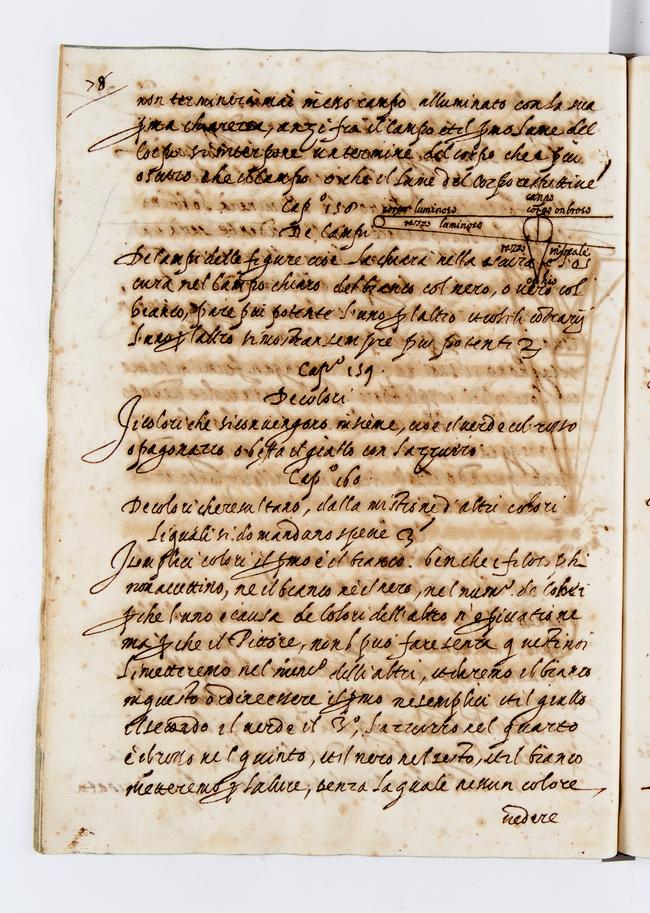 78
non terminerà mai in esso campo alluminato con la sua
pma chiarezza, anzi fra il campo et il pmo lume del
Corpo si interpone un termine del corpo che è piu
oscuro che il campo o che il lume del Corpo
Cap.º 158
campo
corpo luminoso
corpo onbroso
razzo luminoso
De Campi
razzo
visuale
De campi delle figure cioè la chiara nella scura e l'os
ochio
cura nel Campo chiaro del bianco col nero, o nero col
bianco, pare piu potente l'uno p l'altro et cosi li cõtrarij
l'uno p l'altro si mostran sempre piu potenti
Cap.º 159.
De colori
I colori che si convengono insieme, cioè il verde col rosso
o pagonazzo o et il giallo con l'azzurro
Cap.º 160
De colori che resultano, dalla mistione d'altri colori
li quali si domandano spetie 3ª
I semplici colori il pmo è il bianco. benche i filosophi
non accettino, ne il bianco ne il nero, nel numº. de Colori
p che l'uno è causa de Colori dell'altro n'è privatione
ma p che il Pittore, non può fare senza questi noi
li metteremo nel numº delli altri, et diremo il bianco
in questo ordine essere il pmo ne semplici et il giallo
il secondo el verde il 3º, l'azzurro nel quarto
è il rosso nel quinto, et il nero nel sesto, et il bianco
metteremo p la luce, senza la quale nessun colore
vedere